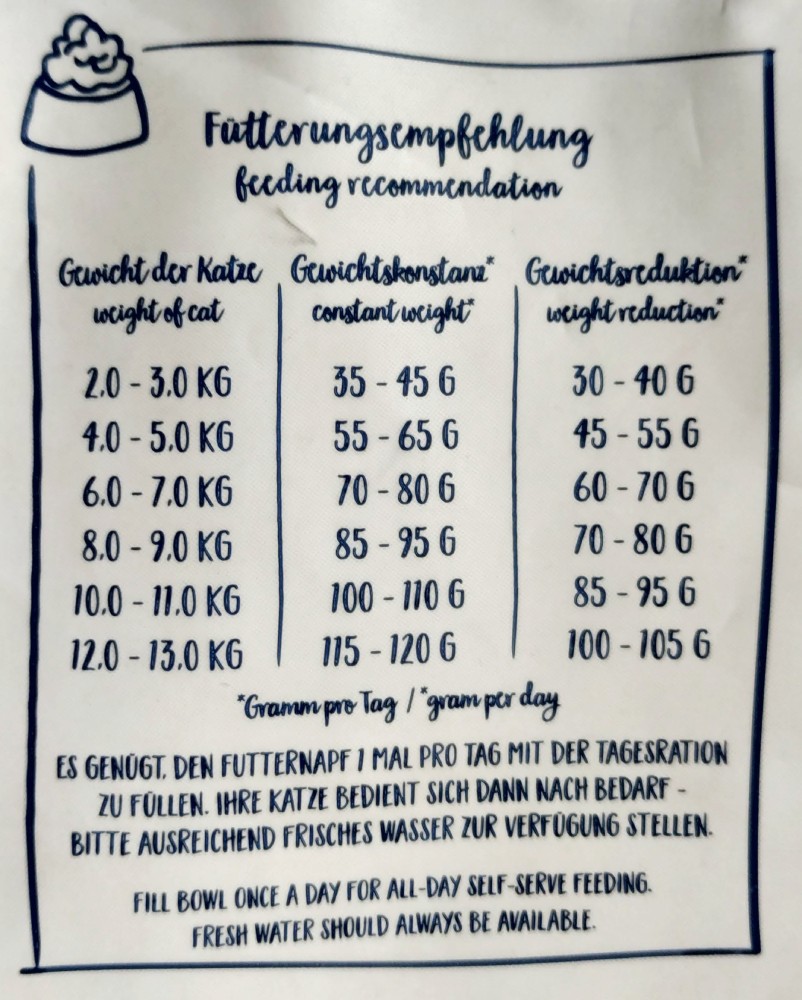 Fütterungsempfehlung
feeding recommendation
Gewicht der Katze Gewichtskonstanz* Gewichtsreduktion*
weight of cat constant weight* weight reduction*
2.0 - 3.0 KG 35 - 45 G 30 - 40 G
4.0 - 5.0 KG 55 - 65 G 45 - 55 G
6.0 - 7.0 KG 70 - 80 G 60 - 70 G
8.0 - 9.0 KG 85 - 95 G 70 - 80 G
10.0 - 11.0 KG 100 - 110 G 85 - 95 G
12.0 - 13.0 KG 115 - 120 G 100 - 105 G
*Gramm pro Tag / *gram per day
ES GENÜGT, DEN FUTTERNAPF 1 MAL PRO TAG MIT DER TAGESRATION
ZU FÜLLEN. IHRE KATZE BEDIENT SICH DANN NACH BEDARF -
BITTE AUSREICHEND FRISCHES WASSER ZUR VERFÜGUNG STELLEN.
FILL BOWL ONCE A DAY FOR ALL-DAY SELF-SERVE FEEDING.
FRESH WATER SHOULD ALWAYS BE AVAILABLE.